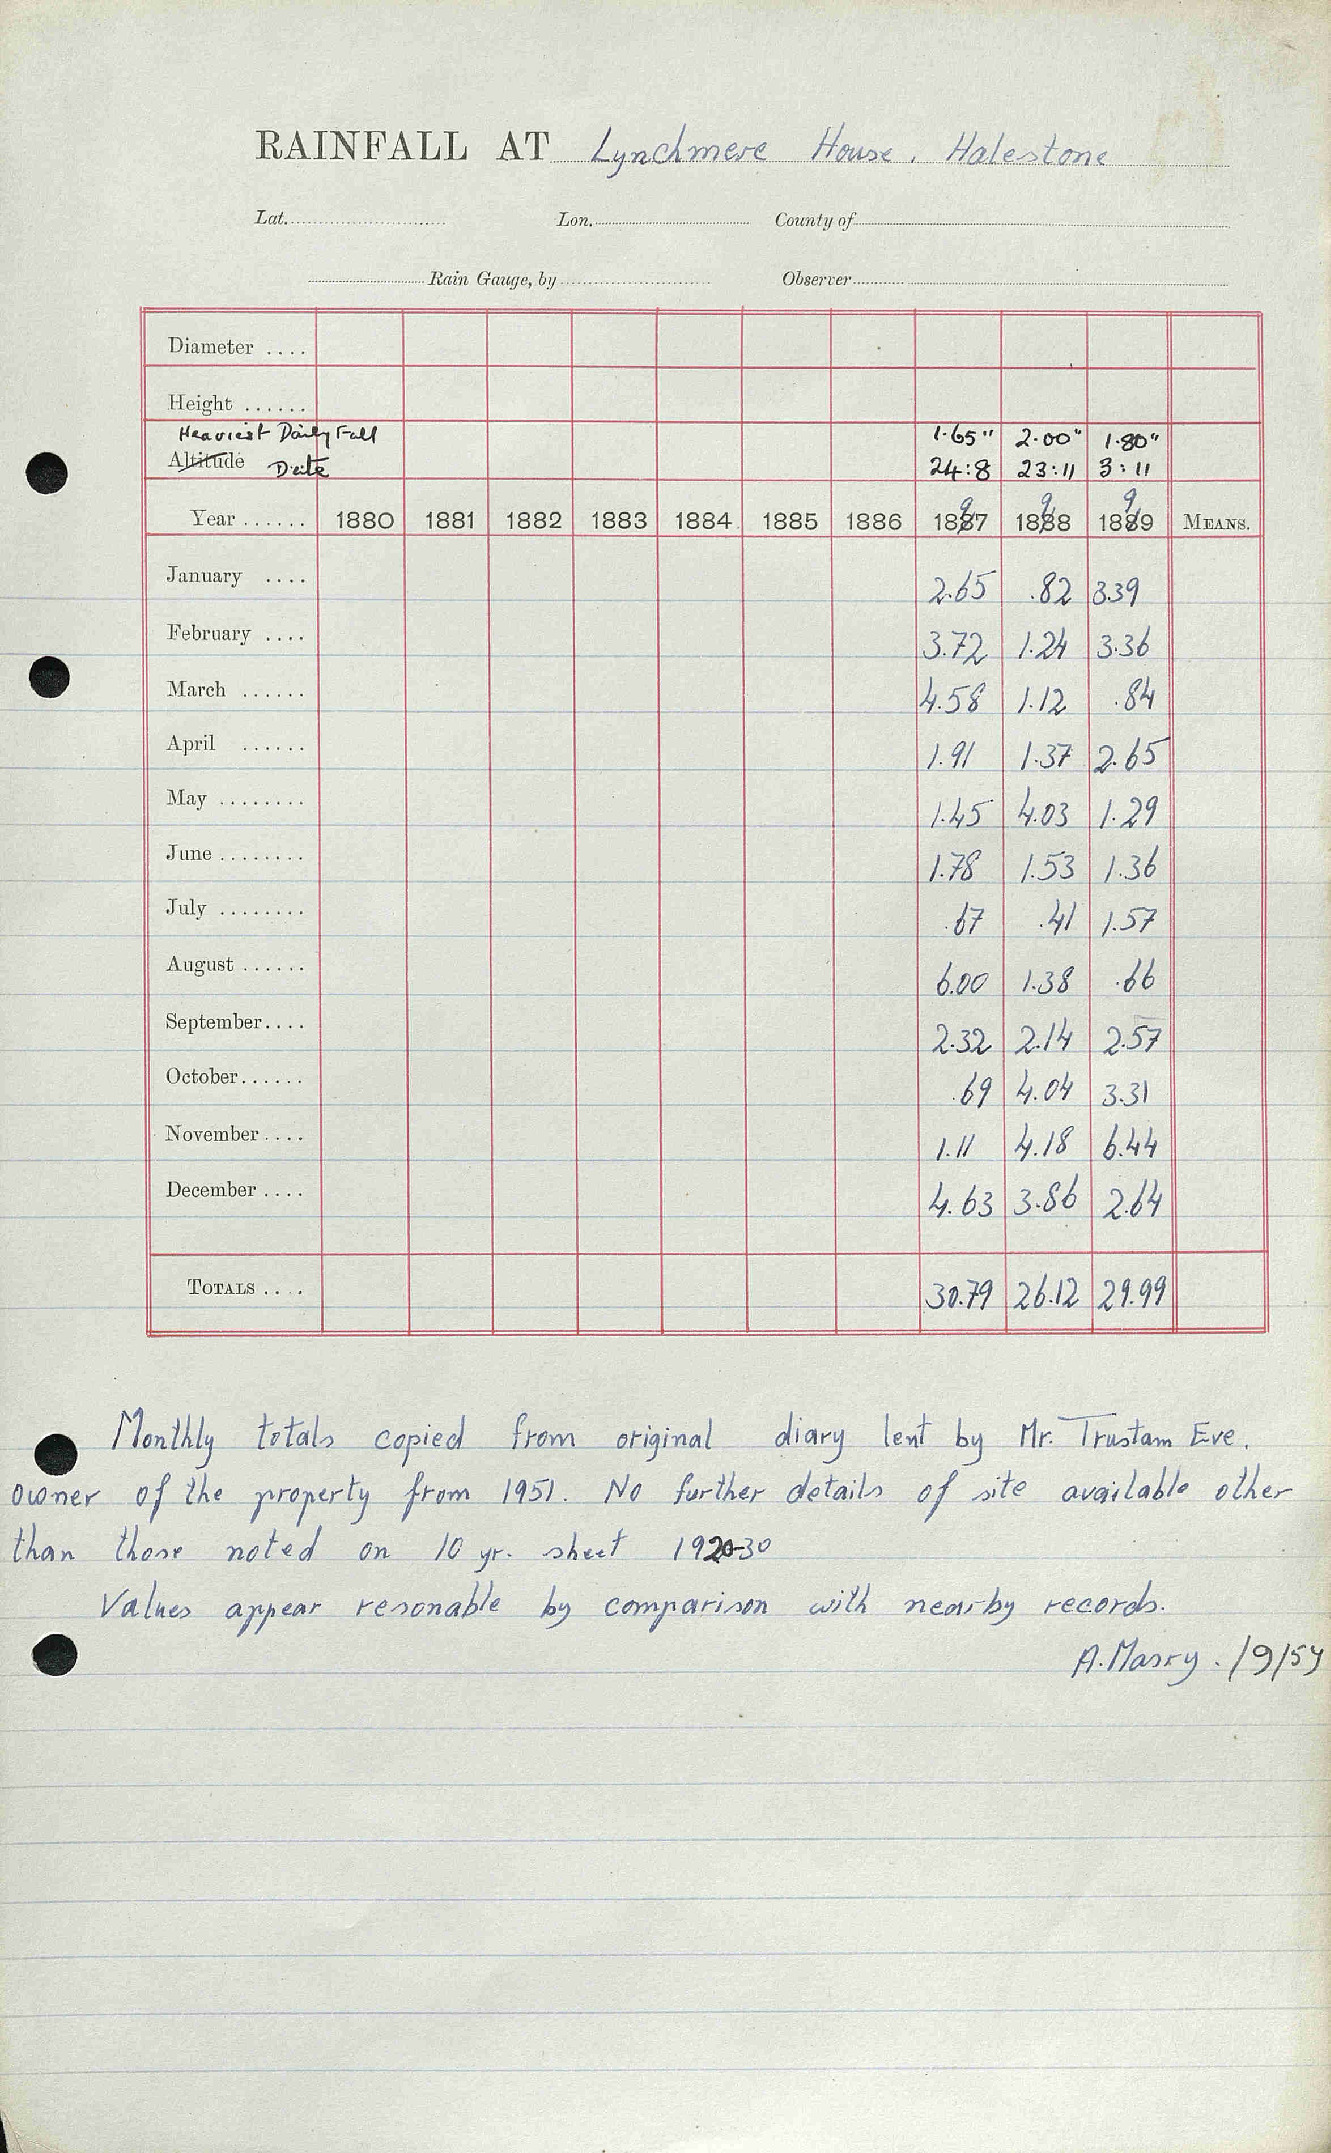 RAINFALL AT Lynchmere House, Halestone
Lat. Lon. County of
Rain Gauge, by Observer
Diameter ....
Height ......
Heaviest Daily Fall 1.65" 2.00" 1.80"
Altitude Date 24:8 23:11 3:11
9 9 9
Year ...... 1880 1881 1882 1883 1884 1885 1886 1887 1888 1889 MEANS.
January .... 2.65 .82 3.39
February .... 3.72 1.24 3.36
March ...... 4.58 1.12 .84
April ...... 1.91 1.37 2.65
May ........ 1.45 4.03 1.29
June ........ 1.78 1.53 1.36
July ........ .67 .41 1.57
August ...... 6.00 1.38 .66
September.... 2.32 2.14 2.57
October...... .69 4.04 3.31
November .... 1.11 4.18 6.44
December .... 4.63 3.86 2.64
TOTALS .... 30.79 26.12 29.99
Monthly totals copied from original diary lent by Mr. Trustam Eve,
owner of the property from 1951. No further details of site available other
than those noted on 10 yr. sheet 1920-30
Values appear resonable by comparison with nearby records.
A. Masry. /9/54